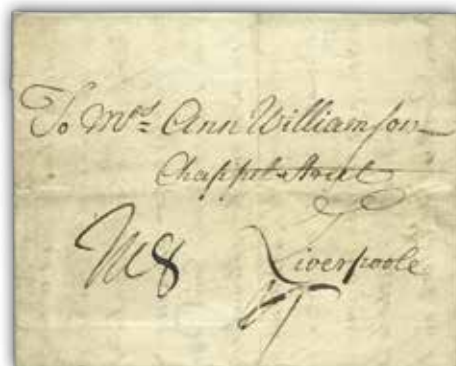 To Mrs Ann Williamson
Chappel Street
Liverpoole